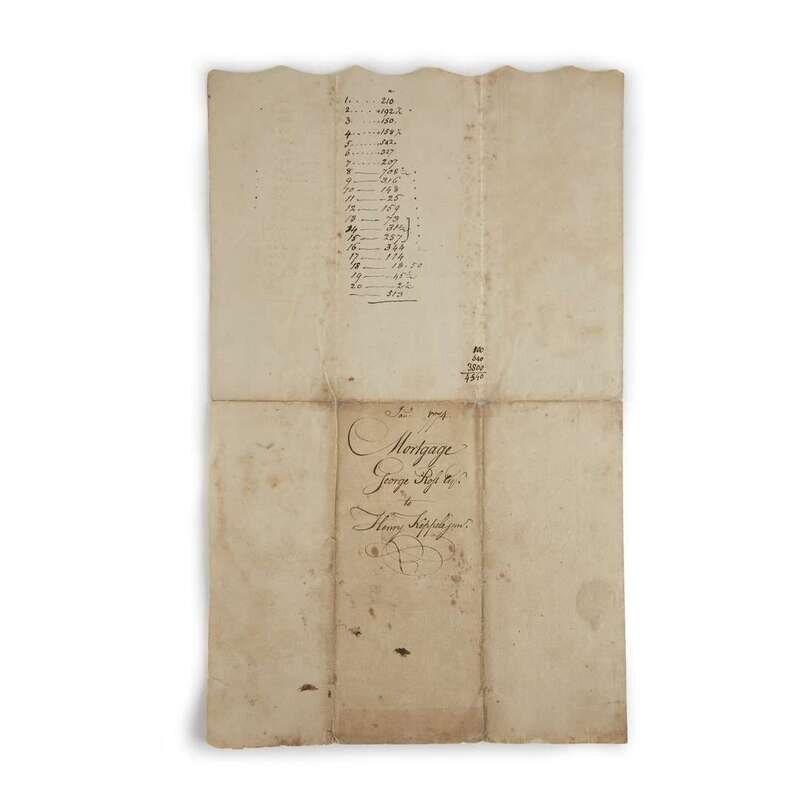 1 . . . . 210
2 . . . . 192 ½
3 . . . . 150
4 . . . . 158 ½
5 . . . . 542
6 . . . . 327
7 . . . . 207
8 —— 708 ½
9 —— 316
10 —— 148
11 —— 25
12 —— 159
13 —— 73
14 —— 31 ½
15 —— 257
16 —— 344
17 —— 114
18 —— 18 . 50
19 —— 45 ½
20 —— 2 ½
—— 313
040
3800
4540
Jan.y 1774.
Mortgage
George Ross Esq.r
to
Henry Keppele jun.r